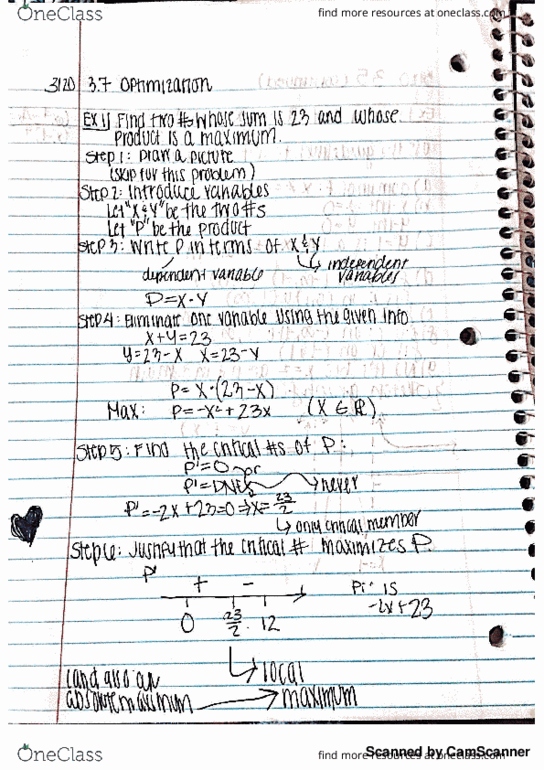 OneClass
find more resources at oneclass.com
3/20 3.7 Optimization
EX 1) Find two #s whose sum is 23 and whose
product is a maximum.
Step 1: Draw a picture
(skip for this problem)
Step 2: Introduce variables
Let "X & Y" be the two #s
Let "P" be the product
Step 3: Write P in terms of X & Y
dependent variable
independent
variables
P=X·Y
Step 4: Eliminate one variable using the given info
X+Y=23
Y=23-X X=23-Y
P=X·(23-X)
Max: P=-X²+23X (X ∈ ℝ)
Step 5: Find the critical #s of P:
P'=0 or
P'=DNE → never
P'=-2X+23=0 → X=23/2
↳ only critical member
Step 6: Justify that the critical # maximizes P.
P' + -
0 23/2 12
P' is
-2X+23
local
maximum
(and also an
absolute maximum
OneClass
find more resources at oneclass.com
Scanned by CamScanner